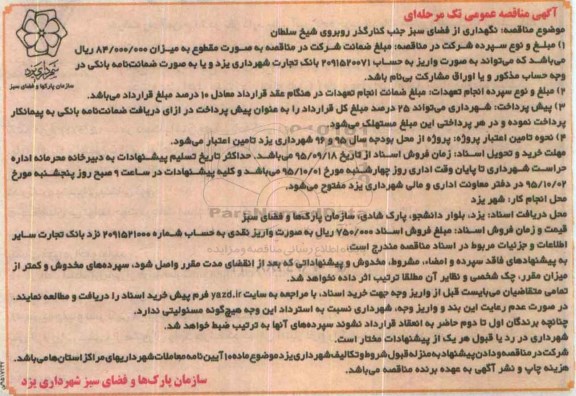 آگهی مناقصه عمومی تک مرحله‌ای
شهرداری یزد
سازمان پارکها و فضای سبز
موضوع مناقصه: نگهداری از فضای سبز جنب کنارگذر روبروی شیخ سلطان
۱) مبلغ و نوع سپرده شرکت در مناقصه: مبلغ ضمانت شرکت در مناقصه به صورت مقطوع به میزان ۸۴/۰۰۰/۰۰۰ ریال
می‌باشد که می‌تواند به صورت واریز به حساب ۲۰۹۱۵۲۰۰۷۱ بانک تجارت شهرداری یزد و یا به صورت ضمانت‌نامه بانکی در
وجه حساب مذکور و یا اوراق مشارکت بی‌نام باشد.
۲) مبلغ و نوع سپرده انجام تعهدات: مبلغ ضمانت انجام تعهدات در هنگام عقد قرارداد معادل ۱۰ درصد مبلغ قرارداد می‌باشد.
۳) پیش پرداخت: شهرداری می‌تواند ۲۵ درصد مبلغ کل قرارداد را به عنوان پیش پرداخت در ازای دریافت ضمانت‌نامه بانکی به پیمانکار
پرداخت نموده و در هر پرداختی این مبلغ مستهلک می‌شود.
۴) نحوه تامین اعتبار پروژه: پروژه از محل بودجه سال ۹۵ و ۹۶ شهرداری یزد تامین اعتبار می‌شود.
مهلت خرید و تحویل اسناد: زمان فروش اسناد از تاریخ ۹۵/۰۹/۱۸ می‌باشد. حداکثر تاریخ تسلیم پیشنهادات به دبیرخانه محرمانه اداره
حراست شهرداری تا پایان وقت اداری روز چهارشنبه مورخ ۹۵/۱۰/۰۱ می‌باشد و کلیه پیشنهادات در ساعت ۹ صبح روز پنجشنبه مورخ
۹۵/۱۰/۰۲ در دفتر معاونت اداری و مالی شهرداری یزد مفتوح می‌شود.
محل انجام کار: شهر یزد
محل دریافت اسناد: یزد، بلوار دانشجو، پارک شادی، سازمان پارک‌ها و فضای سبز
قیمت و زمان فروش اسناد: مبلغ فروش اسناد ۷۵۰/۰۰۰ ریال به صورت واریز نقدی به حساب شماره ۲۰۹۱۵۲۱۰۰۰ نزد بانک تجارت سایر
اطلاعات و جزئیات مربوط در اسناد مناقصه مندرج است.
به پیشنهادهای فاقد سپرده و امضاء، مشروط، مخدوش و پیشنهاداتی که بعد از انقضای مدت مقرر واصل شود، سپرده‌های مخدوش و کمتر از
میزان مقرر، چک شخصی و نظایر آن مطلقا ترتیب اثر داده نخواهد شد.
تمامی متقاضیان می‌بایست قبل از واریز وجه جهت خرید اسناد، با مراجعه به سایت yazd.ir فرم پیش خرید اسناد را دریافت و مطالعه نمایند.
در صورت عدم رعایت این بند و واریز وجه، شهرداری نسبت به استرداد این وجه هیچ‌گونه مسئولیتی ندارد.
چنانچه برندگان اول تا دوم حاضر به انعقاد قرارداد نشوند سپرده‌های آنها به ترتیب ضبط خواهد شد.
شهرداری در رد یا قبول هر یک از پیشنهادات مختار است.
شرکت در مناقصه و دادن پیشنهاد به منزله قبول شروط و تکالیف شهرداری یزد موضوع ماده ۱۰ آیین نامه معاملات شهرداریهای مراکز استان‌ها می‌باشد.
هزینه چاپ و نشر آگهی به عهده برنده مناقصه می‌باشد.
سازمان پارک‌ها و فضای سبز شهرداری یزد